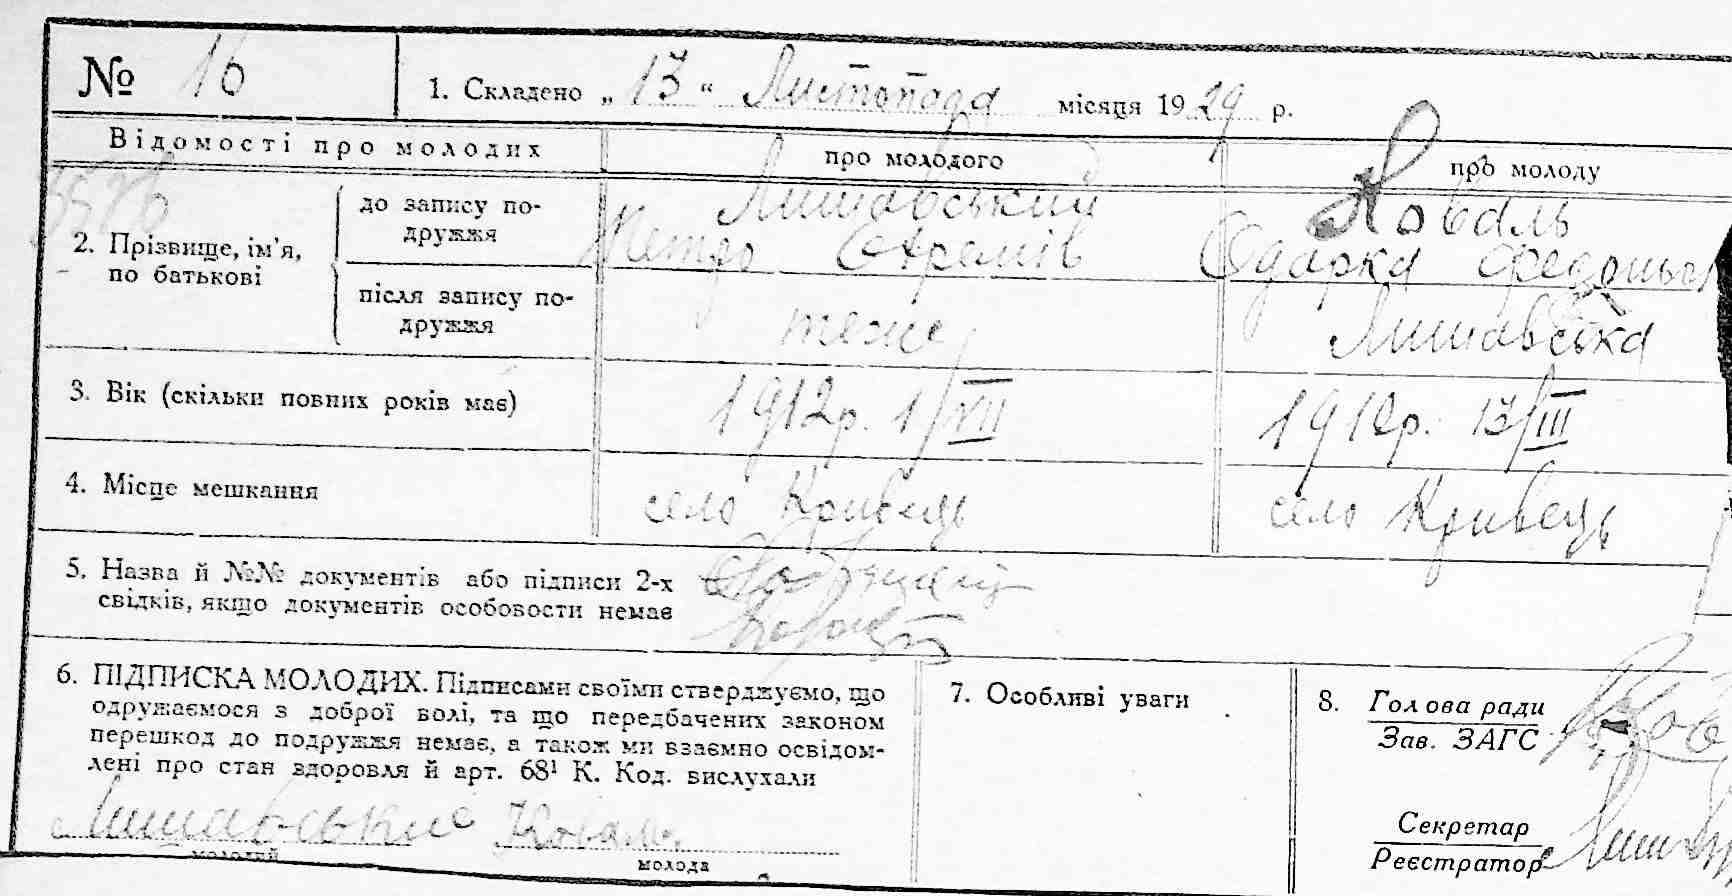 № 16
1. Складено „13“ Листопада місяця 1929 р.
Відомості про молодих
про молодого
про молоду
2. Прізвище, ім'я, по батькові
до запису по-
дружжя
Лишавський
Петро Яремів
Коваль
Одарка Федоньом
після запису по-
дружжя
теж
Лишавська
3. Вік (скільки повних років має)
1912р. 1/VII
1910р. 13/III
4. Місце мешкання
село Кривець
село Кривець
5. Назва й №№ документів або підписи 2-х
свідків, якщо документів особовости немає
6. ПІДПИСКА МОЛОДИХ. Підписами своїми стверджуємо, що
одружаємося з доброї волі, та що передбачених законом
перешкод до подружжя немає, а також ми взаємно освідом-
лені про стан здоровля й арт. 68¹ К. Код. вислухали
Лишавський Коваль
молодий
молода
7. Особливі уваги
8. Голова ради
Зав. ЗАГС
Секретар
Реєстратор